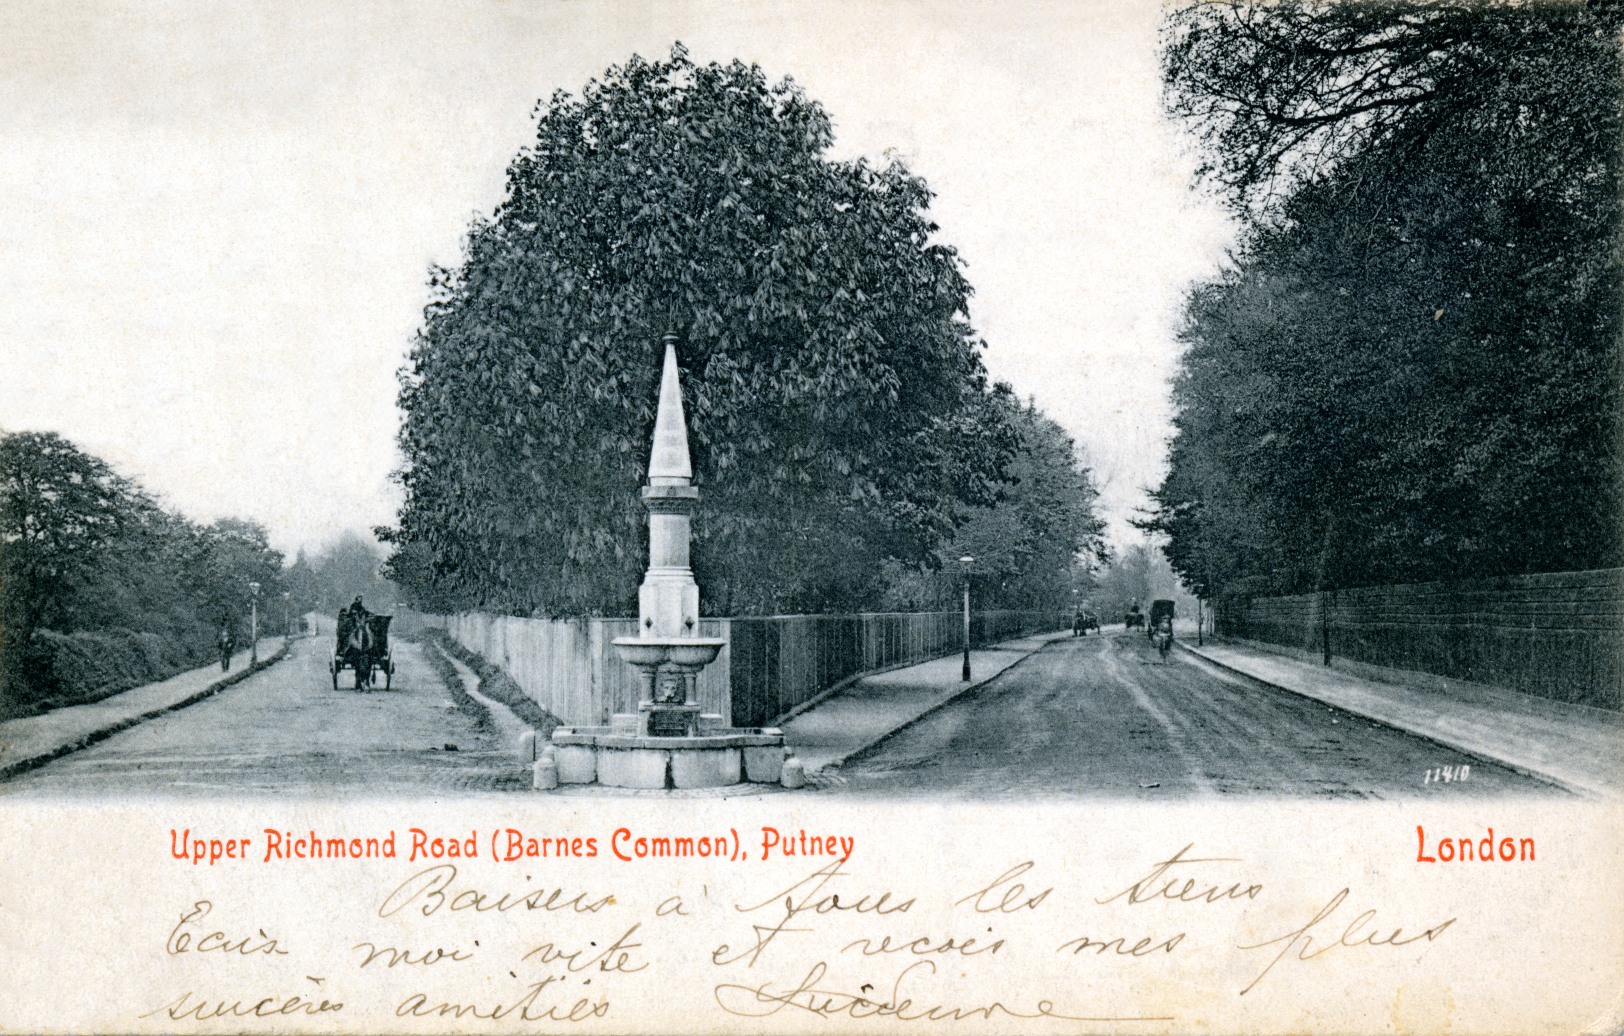 11410
Upper Richmond Road (Barnes Common), Putney London
Baisers à tous les tiens
Ecris moi vite et recois mes plus
sincères amitiés